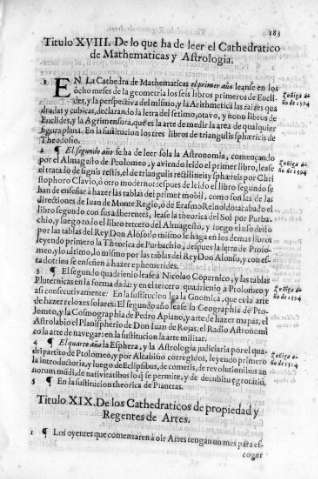 283
Titulo XVIII. De lo que ha de leer el Cathedratico
de Mathematicas y Astrologia.
1 EN La Cathedra de Mathematicas el primer año leanse en los
ocho meses de la geometria los seis libros primeros de Eucli-
des, y la perspectiva del mismo, y la Arithmetica las raizes qua
dradas y cubicas, declarando la letra del septimo, otavo, y nono libros de
Euclides, y la Agrimensura, que es la arte de medir la area de qualquier
figura plana. En la sustitucion los tres libros de triangulis sphæricis de
Theodosio.
2 ¶ El segundo año se ha de leer sola la Astronomia, començando
por el Almagesto de Ptolomeo, y aviendo leido el primer libro, lease
el tratado de signis rectis, el de triangulis rectilineis y sphæricis por Chri
stophoro Clavio, o otro moderno: despues de leido el libro segundo se
han de enseñar à hazer las tablas del primer mobil, como son las de las
directiones de Iuan de Monte Regio, o de Erasmo Reinoldo: acabado el
libro segundo con sus adherentes, lease la theorica del Sol por Purba-
chio, y luego todo el libro tercero del Almagesto, y luego el uso desto
por las tablas del Rey Don Alonso: lo mismo se haga en los demas libros
leyendo primero la Theorica de Purbachio, despues la letra de Ptolo-
meo, y lo ultimo, lo mismo por las tablas del Rey Don Alonso, y con es-
ta dotrina se enseñen a hazer ephemerides.
3 ¶ El segundo quadrienio lease à Nicolao Copernico, y las tablas
Plutenicas en la forma dada: y en el tercero quadrienio a Ptolomeo, y
assi consecutivamente. En la sustitucion lea la Gnomica, que es la arte
de hazer relozes solares. El segundo año lease la Geographia de Pto-
lomeo, y la Cosmographia de Pedro Apiano, y arte de hazer mapas, el
Astrolabio, el Planispherio de Don Iuan de Rojas, el Radio Astronomi
co, la arte de navegar: en la sustitucion la arte militar.
4 ¶ El quarto año la Esphera, y la Astrologia judiciaria por el qua-
dripartito de Ptolomeo, y por Alcabisio corregidos, leyendo primero
la introductoria, y luego de Eclipsibus, de cometis, de revolutionibus an
norum mundi, de nativitatibus lo q̃ se permite, y de decubitu ægrotantiũ.
5 ¶ En la sustitucion theorica de Planetas.
Titulo XIX. De los Cathedraticos de propiedad y
Regentes de Artes.
1 ¶ Los oyentes que comentaren à oir Artes tengan un mes para es-
coger